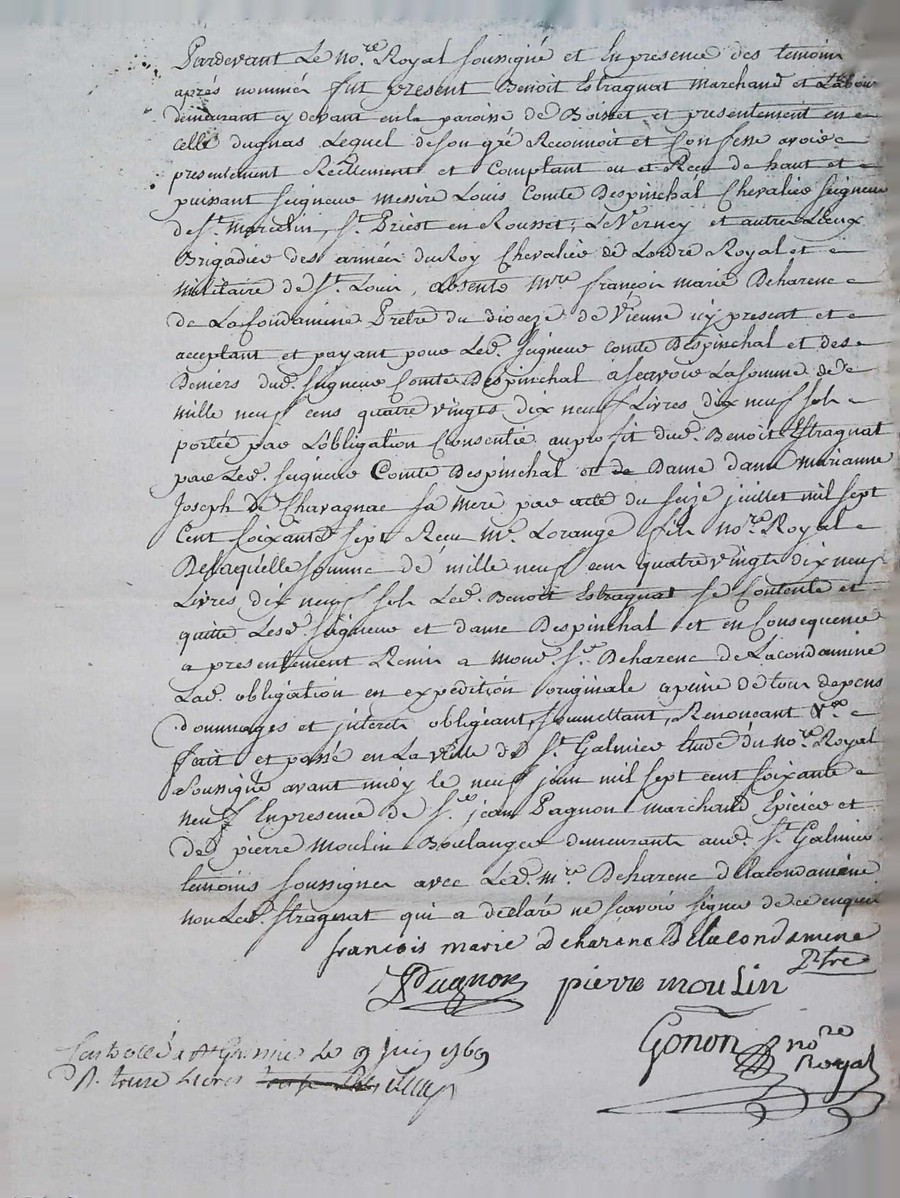 Pardevant Le no.re Royal soussigné et En presence des temoins
aprés nommés fut present Benoit Estragnat marchand et Labour
demeurant cy devant en la paroisse de Boisset et presentement en
celle dugnas Lequel de son gré Reconnoit et Confesse avoir
presentement Réellement et Comptant eu et Recu de haut et
puissant seigneur messire Louis Comte Despinchal Chevalier seigneur
de St. marcelin, St. Priest en Rousset, Le Verney et autres Lieux
Brigadier des armées du Roy Chevalier de Lordre Royal et
militaire de St. Louis, absent mre françois marie Deharenc
de Lacondamine Prêtre du dioceze de Vienne icy present et
acceptant et payant pour Led. seigneur comte Despinchal et des
Deniers dud. seigneur Comte Despinchal ascavoir La somme de
mille neuf cens quatre vingts dix neuf Livres dix neuf sols
portée par L'obligation Consentie au profit dud. Benoit Estragnat
par Led. seigneur Comte Despinchal et de Dame dame marianne
Joseph de Chavagnac sa mere par acte du seize juillet mil sept
Cent soixante sept Recu Me. Lorange fils no.re Royal
De laquelle somme de mille neuf cens quatre vingts dix neuf
Livres dix neuf sols Led. Benoit Estragnat se Contente et
quitte Lesd. seigneur et dame Despinchal et en Consequence
a presentement Remis a mond. Sr. Deharenc de Lacondamine
Lad. obligation en expedition originale a peine de tous depens
dommages et interets obligeant, soumettant, Renoncant &ca
fait et passé en La ville de St Galmier Etude du no.re Royal
soussigné avant midy le neuf juin mil sept cent soixante
neuf En presence de Sr. jean Pagnon marchand Epicier et
de pierre moulin Boulanger demeurants aud. St Galmier
temoins soussignes avec Led. mre Deharenc delacondamine
non Led. Estragnat qui a declaré ne scavoir signer de ce enquis
francois marie deharenc Delacondamine
Ptre
Pagnon pierre moulin
Gonon no.re
Royal
Controllé a St Galmier Le 9 juin 1769
R. treize Livres